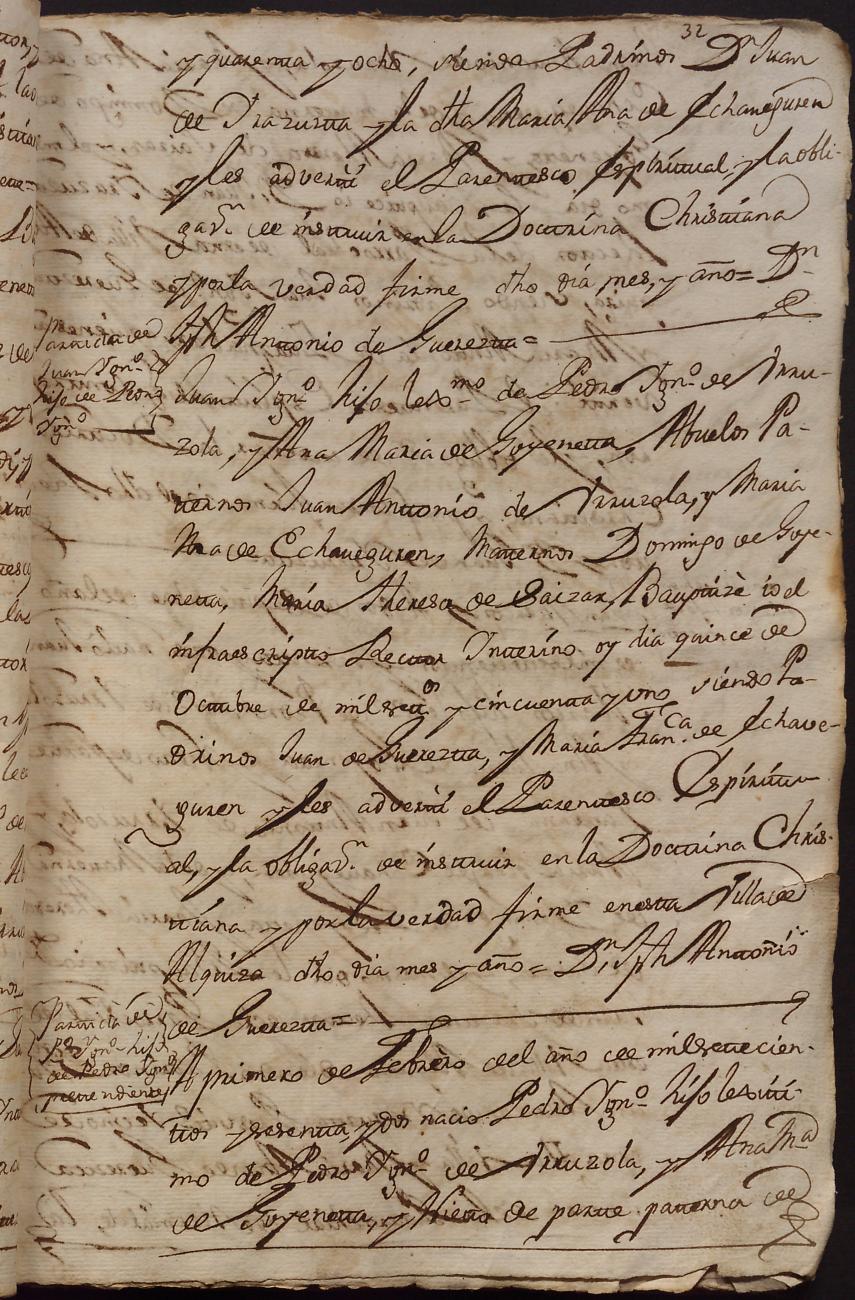 32
y quarenta y ocho, siendo Padrinos Dn Juan
de Yrazusta y la dha Maria Ana de Echaveguren
y les adverti el Parentesco Espiritual, y la obli-
gazn de instruir en la Doctrina Christiana
y por la verdad firme dho dia, mes, y año = Dn
Jph Antonio de Guerezta =
Partida de
Juan Ygno
hijo de Pedro
Ygno
Juan Ygno hijo lexmo de Pedro Ygno de Yrru-
zola, y Ana Maria de Goyenetta, Abuelos Pa-
ternos Juan Antonio de Yrruzola, y Maria
Ana de Echaveguren, Maternos Domingo de Goye-
netta, Maria Theresa de Saizar, Bauptizè io el
infraescripto Rector Ynterino oy dia quince de
Octubre de mil settos y cincuenta y uno siendo Pa-
drinos Juan de Guerezta, y Maria Franca de Echave-
guren y les adverti el Parentesco Espiritu-
al, y la obligazn de instruir en la Doctrina Chris-
tiana y por la verdad firme en esta Villa de
Alquiza dho dia mes y año = Dn Jph Antonio
de Guerezta =
Partida de
Po Ygno hijo
de Pedro Ygno
pretendiente
A primero de Febrero del año de mil settecien-
tos y sesenta, y dos nacio Pedro Ygno hijo lexiti-
mo de Pedro Ygno de Yrruzola, y Ana Ma
de Goyenetta, y Nieto de parte paterna de